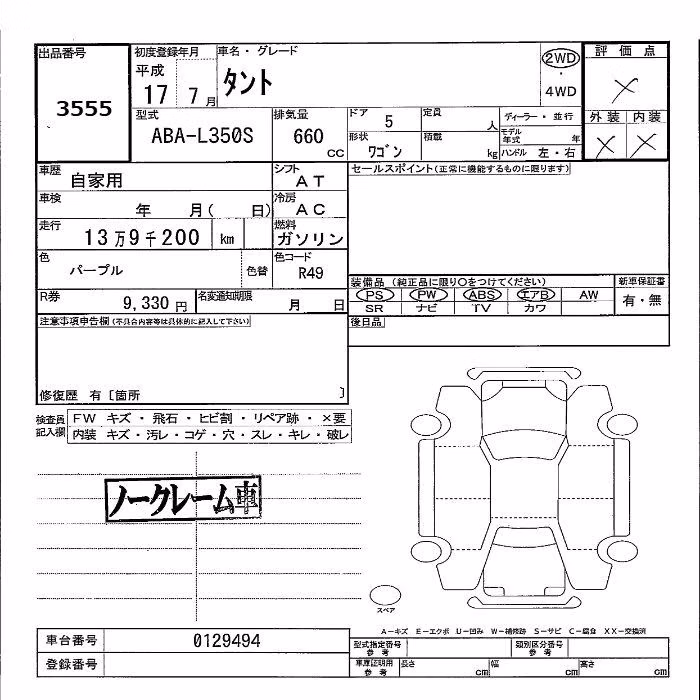 出品番号
3555
初度登録年月
平成
17 7月
車名・グレード
タント
2WD
・
4WD
評価点
×
外装 内装
× ×
型式
ABA-L350S
排気量
660
CC
ドア
5
定員
人
形状
ワゴン
積載
kg
ディーラー・並行
モデル年式
年
ハンドル 左・右
車歴
自家用
シフト
AT
車検
年 月( 日)
冷房
AC
走行
13万9千200 km
燃料
ガソリン
色
パープル
色替
色コード
R49
R券
9,330円
名変通知期限
月 日
セールスポイント(正常に機能するものに限ります)
装備品(純正品に限り○をつけてください)
PS PW ABS エアB AW
SR ナビ TV カワ
新車保証書
有・無
後日品
注意事項申告欄(不具合内容等は具体的に記入して下さい)
修復歴 有〔箇所 〕
検査員記入欄
FW キズ・飛石・ヒビ割・リペア跡・×要
内装 キズ・汚レ・コゲ・穴・スレ・キレ・破レ
ノークレーム車
スペア
A-キズ E-エクボ U-凹み W-補修跡 S-サビ C-腐食 XX-交換済
車台番号
0129494
登録番号
型式指定番号
参考
類別区分番号
参考
車庫証明用
参考
長さ cm
幅 cm
高さ cm